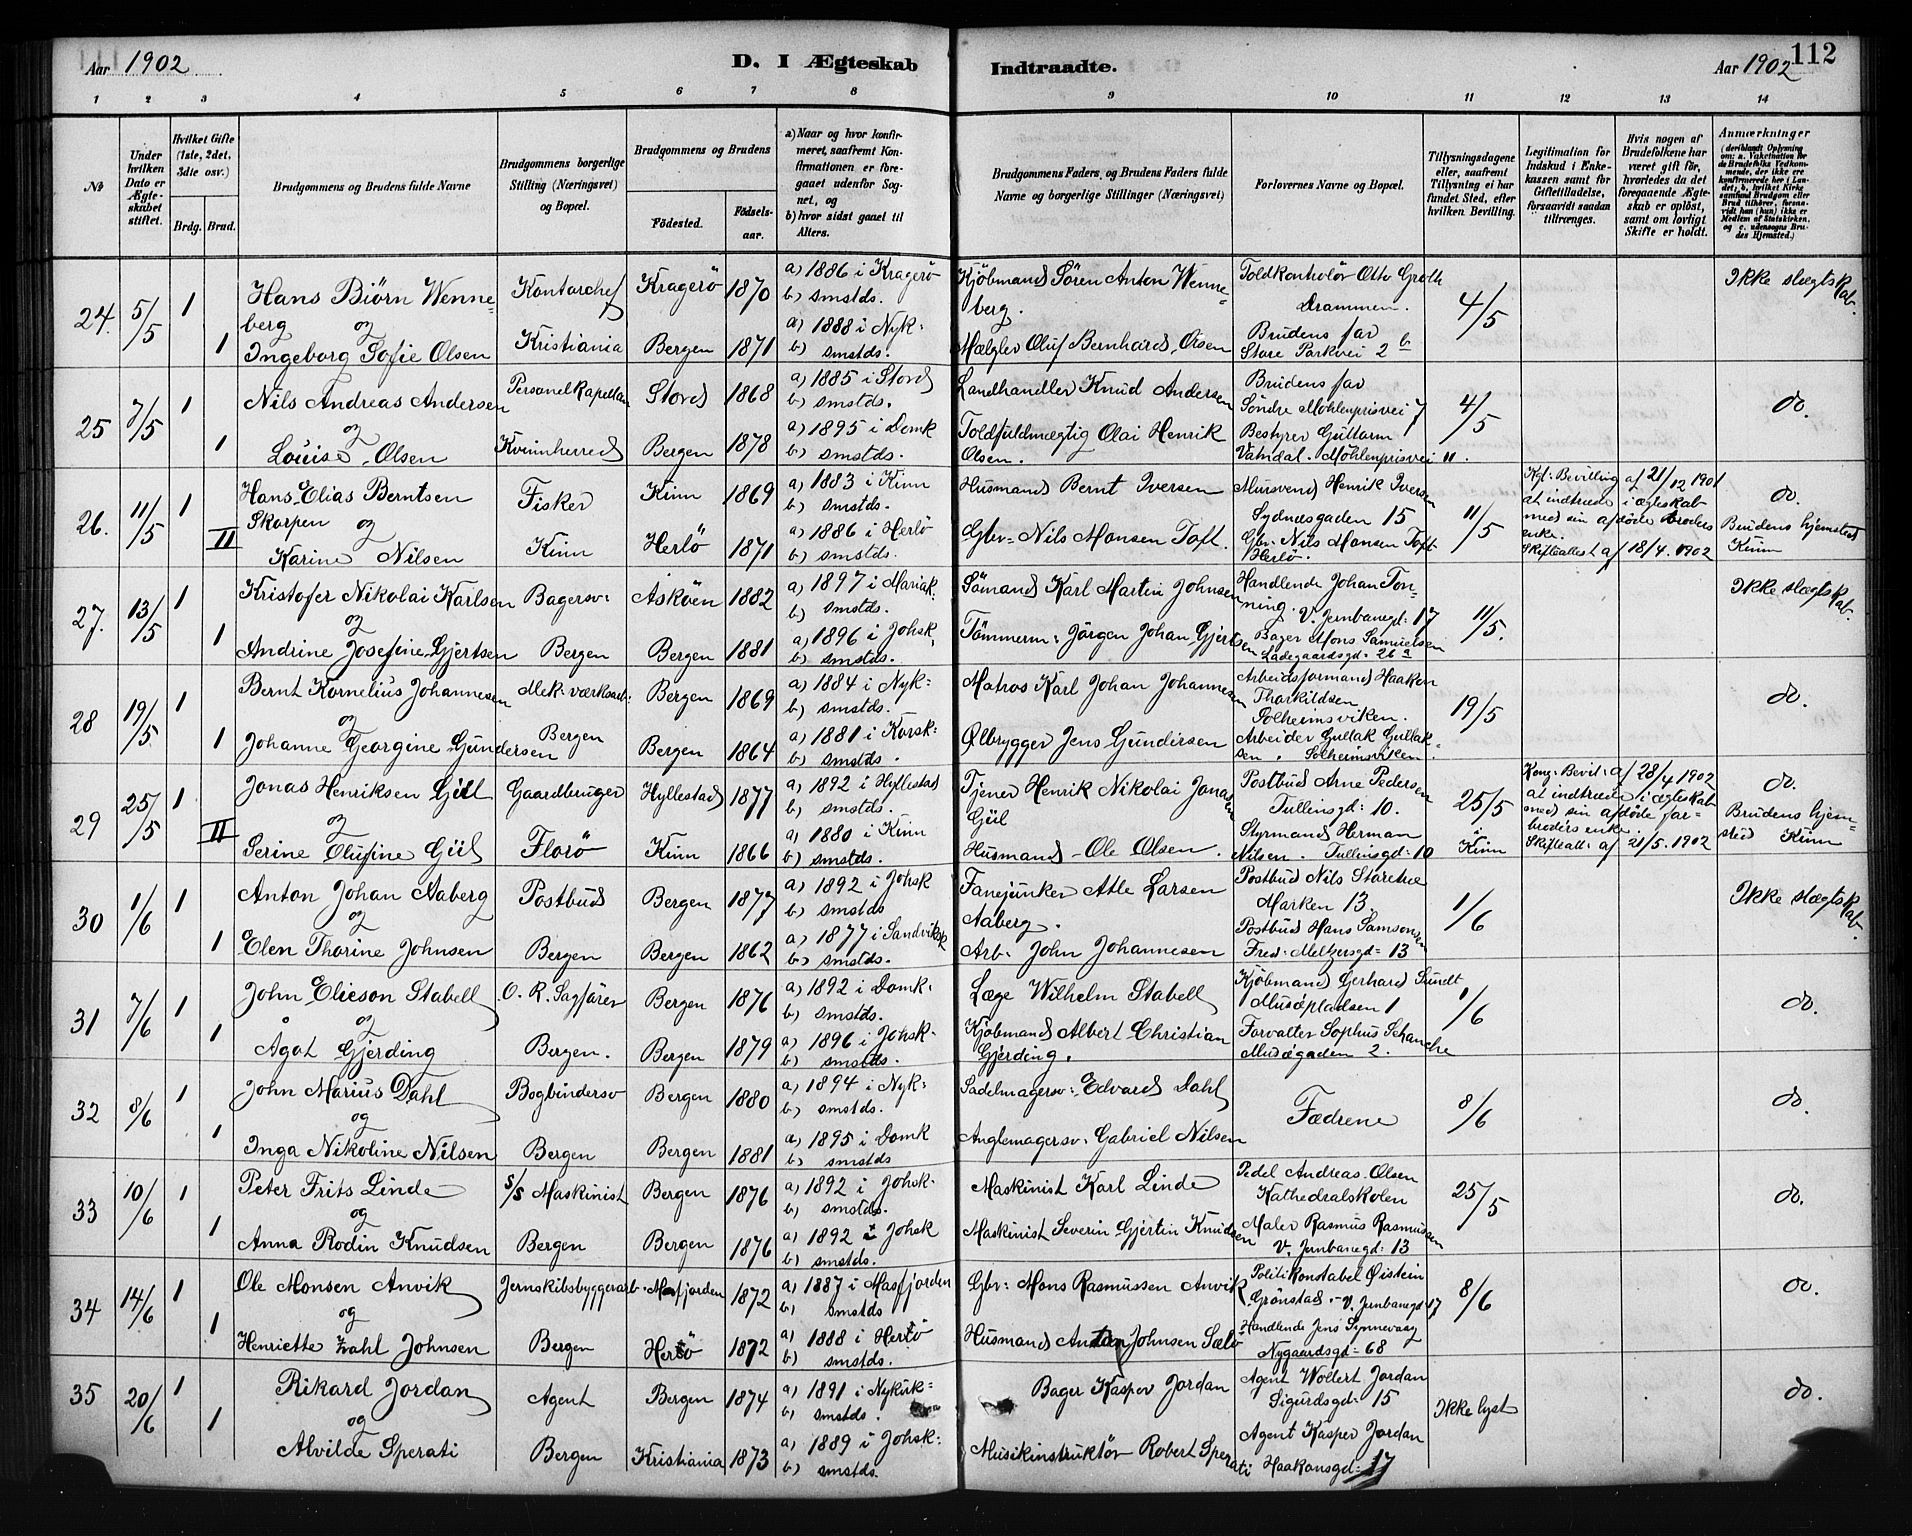 Aar 1902
D. I Ægteskab Indtraadte.
Aar 1902
112
1 2 3 4 5 6 7 8 9 10 11 12 13 14
No
Under hvilken Dato er Ægteskabet stiftet.
Hvilket Gifte (1ste, 2det, 3die osv.)
Brdg. Brud.
Brudgommens og Brudens fulde Navne
Brudgommens borgerlige Stilling (Næringsvei) og Bopæl.
Brudgommens og Brudens
Födested.
Födselsaar.
a) Naar og hvor konfirmeret, saafremt Konfirmationen er foregaaet udenfor Sognet, og
b) hvor sidst gaaet til Alters.
Brudgommens Faders, og Brudens Faders fulde Navne og borgerlige Stillinger (Næringsvei)
Forlovernes Navne og Bopæl.
Tillysningsdagene eller, saafremt Tillysning ei har fundet Sted, efter hvilken Bevilling.
Legitimation for Indskud i Enkekassen samt for Giftetilladelse, forsaavidt saadan tiltrænges.
Hvis nogen af Brudefolkene har været gift før, hvorledes da det foregaaende Ægteskab er oplöst, samt om lovligt Skifte er holdt.
Anmærkninger
(deriblandt Oplysning om: a. Vakcination for de Brudefolks Vedkommende, der ikke ere konfirmerede her i Landet, b. hvilket Kirkesamfund Brudgom eller Brud tilhører, forsaavidt han (hun) ikke er Medlem af Statskirken, og c. udensogns Brudes Hjemsted.)
24. 5/5 1 Hans Biørn Wenneberg Kontorchef Kragerö 1870 a) 1886 i Kragerö b) smstds. Kjöbmand Sören Anton Wenneberg. Toldkontrolör Otto Groth Drammen. 4/5 Ikke slægtskab.
og
1 Ingeborg Sofie Olsen Kristiania Bergen 1871 a) 1888 i Nyk: b) smstds. Mægler Oluf Bernhard Olsen Brudens far Store Parkvei 2 b
25 7/5 1 Nils Andreas Andersen Personelkapellan Stord 1868 a) 1885 i Stord b) smstds. Landhandler Knud Andersen Brudens far Söndre Möhlenprisvei 7 4/5 do.
og
1 Louise Olsen Kvinnherred Bergen 1878 a) 1895 i Domk b) smstds. Toldfuldmægtig Olai Henrik Olsen. Bestyrer Guttorm Vatndal. Möhlenprisvei 11.
26. 11/5 1 Hans Elias Berntsen Skorpen Fisker Kinn 1869 a) 1883 i Kinn b) smstds. Husmand Bernt Iversen Mursvend Henrik Iversen Sydnesgaden 15 11/5 Kgl: Bevilling af 21/12 1901 at indtræde i ægteskab med sin afdöde broders enke. Skifteattest af 18/4. 1902 do.
og
II Karine Nilsen Kinn Herlö 1871 a) 1886 i Herlö b) smstds. Gbr= Nils Monsen Toft. Gbr. Nils Monsen Toft Herlö. Brudens hjemsted Kinn
27. 13/5 1 Kristofer Nikolai Karlsen Bagersv: Askøen 1882 a) 1897 i Mariak: b) smstds. Sömand Karl Martin Johnsen Handlende Johan Tonning. V. Jernbanegd: 17 11/5. Ikke slægtskab.
og
1 Andrine Josefine Gjertsen Bergen Bergen 1881 a) 1896 i Johsk. b) smstds. Tömmerm: Jörgen Johan Gjertsen Bager Mons Samuelsen Ladegaardsgd: 26 a
28 19/5 1 Bernt Kornelius Johannesen Mek. værksarb: Bergen 1869 a) 1884 i Nyk: b) smstds. Matros Karl Johan Johannesen Arbeidsformand Haaken Tharkildsen Solheimsviken. 19/5 do.
og
1 Johanne Georgine Gundersen Bergen Bergen 1864 a) 1881 i Korsk: b) smstds. Ølbrygger Jens Gundersen Arbeider Gullak Gullaksen. Solheimsviken.
29 25/5 1 Jonas Henriksen Giil Gaardbruger Hyllestad 1877 a) 1892 i Hyllestad b) smstds. Tjener Henrik Nikolai Jonasen Giil Postbud Arne Pedersen Tullinsgd: 10. 25/5 i Kinn Kong: Bevil: af 28/4 1902 at indtræde i ægteskab med sin afdöde farbroders enke. Skifteatt: af 21/5. 1902 do.
og
II Serine Olufine Giil Florö Kinn 1866 a) 1880 i Kinn b) smstds. Husmand Ole Olsen. Styrmand Herman Nilsen. Tullinsgd: 10 Brudens hjemsted Kinn
30 1/6 1 Anton Johan Aaberg Postbud Bergen 1877 a) 1892 i Johsk b) smstds Fanejunker Atle Larsen Aaberg. Postbud Nils Storetve Marken 13. 1/6 Ikke slægtskab.
og
1 Elen Thorine Johnsen Bergen Bergen 1862 a) 1877 i Sandviksk b) smstds. Arb: John Johannesen Postbud Hans Samsonsen Fred: Meltzersgd= 13
31 7/6 1 John Elieson Stabell O. R. Sagförer Bergen 1876 a) 1892 i Domk. b) smstds. Læge Wilhelm Stabell Kjöbmand Gerhard Sundt Musépladsen 1 1/6 do.
og
1 Ågot Gjerding Bergen. Bergen 1879 a) 1896 i Johsk. b) smstds. Kjöbmand Albert Christian Gjerding. Forvalter Sophus Schanche Muségaden 2.
32 8/6 1 John Marius Dahl Bogbindersv Bergen 1880 a) 1894 i Nyk: b) smstds. Sadelmagersv: Edvard Dahl Fædrene 8/6 do.
og
1 Inga Nikoline Nilsen Bergen Bergen 1881 a) 1895 i Domk b) smstds Anglemagersv. Gabriel Nilsen
33 10/6 1 Peter Frits Linde S/S Maskinist Bergen 1876 a) 1892 i Johsk. b) smstds. Maskinist Karl Linde Pedel Andreas Olsen Kathedralskolen 25/5 do.
og
1 Anna Rodin Knudsen Bergen Bergen 1876 a) 1892 i Johsk b) smstds. Maskinist Severin Gjertin Knudsen Maler Rasmus Rasmussen V. Jernbanegd: 13
34 14/6 1 Ole Monsen Anvik Jernskibsbyggerarb. Masfjorden 1872 a) 1887 i Masfjorden b) smstds Gbr: Mons Rasmussen Anvik Politikonstabel Øistein Grönstad. V. Jernbanegd 17 8/6 do.
og
1 Henriette Zahl Johnsen Bergen Herlö 1872 a) 1888 i Herlö b) smstds. Husmand Anton Johnsen Sælö Handlende Jens Synnevaag Nygaardsgd= 68
35 20/6 1 Rikard Jordan Agent Bergen 1874 a) 1891 i Nykirk= b) smstds. Bager Kasper Jordan Agent Wollert Jordan Sigurdsgd: 15 Ikke lyst do.
og
1 Alvilde Sperati Bergen Kristiania 1873 a) 1889 i Johsk: b) smstds. Musikinstruktör Robert Sperati Agent Kasper Jordan Haakonsgd= 17